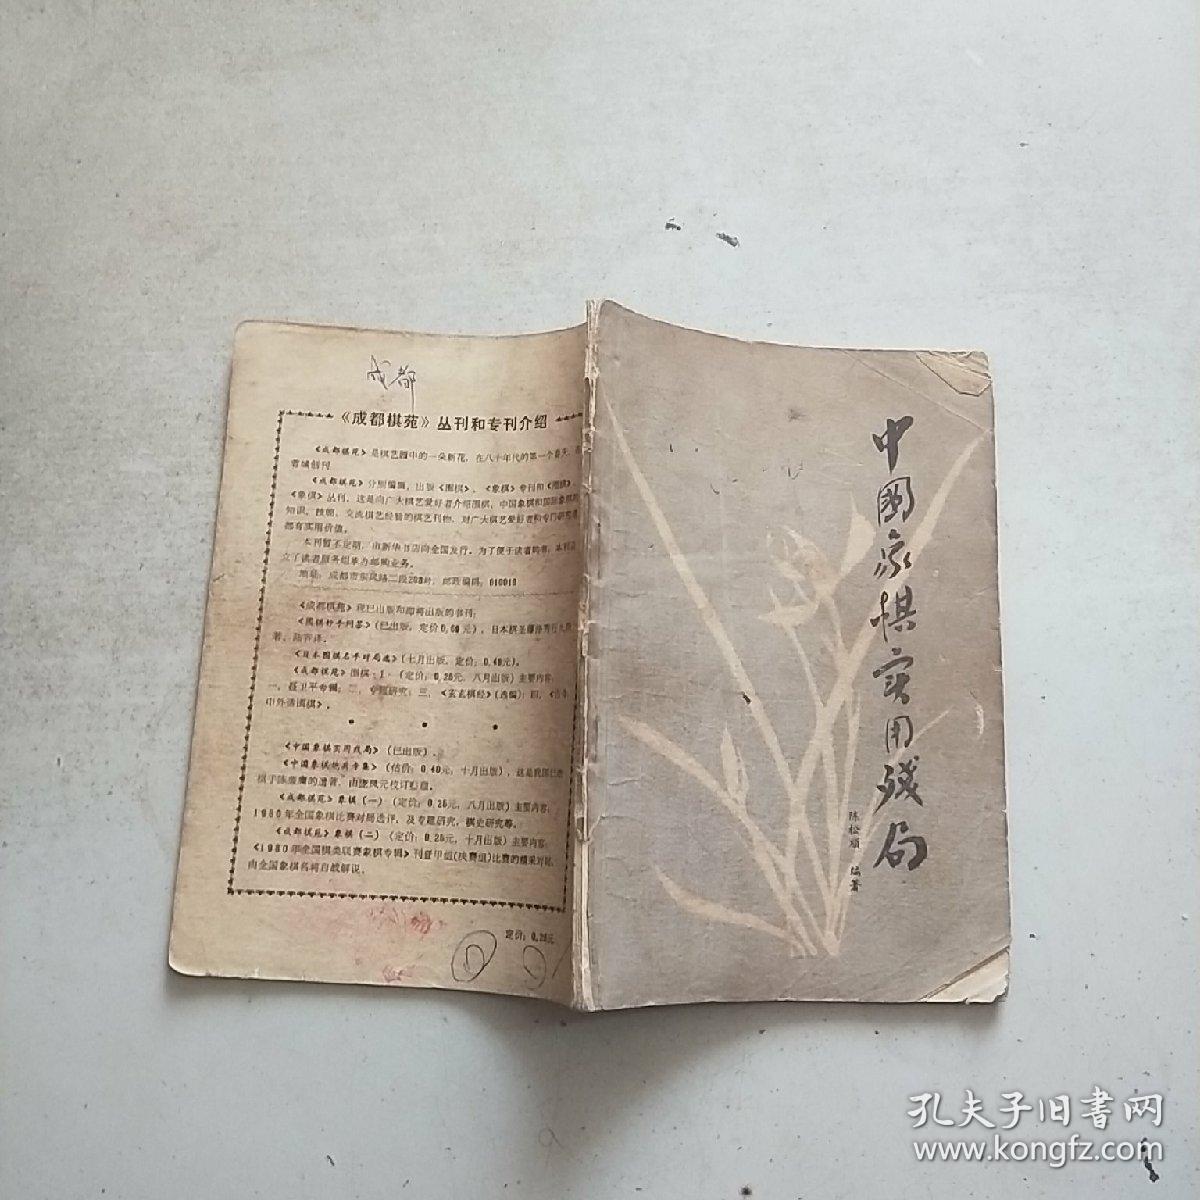 成都
《成都棋苑》丛刊和专刊介绍
《成都棋苑》是棋艺园中的一朵新花，在八十年代的第一个春天，在
蓉城创刊
《成都棋苑》分别编辑、出版《围棋》、《象棋》专刊和《围棋》、
《象棋》丛刊，这是向广大棋艺爱好者介绍围棋、中国象棋和国际象棋的
知识，技朝，交流棋艺经验的棋艺刊物，对广大棋艺爱好者和专门研究者
都有实用价值。
本刊暂不定期，由新华书店向全国发行。为了便于读者购书，本刊设
立了读者服务组承办邮购业务。
地址：成都市东风路二段 邮政编码：610016
《成都棋苑》现已出版和即将出版的书刊：
《围棋妙手问答》（已出版，定价0.60元），日本棋圣藤泽秀行九段
著，陆容译。
《日本围棋名手对局选》（七月出版，定价：0.40元）。
《成都棋苑》围棋：1·（定价：0.25元，八月出版）主要内容：
一、聂卫平专辑；二、专题研究；三、《玄玄棋经》（选编）；四、《古今
中外话围棋》。
《中国象棋实用残局》（已出版）。
（估价：0.40元，十月出版），这是我国已故
棋手陈 的遗著，由 元校订整理。
《成都棋苑》象棋（一）（定价：0.25元，八月出版）主要内容：
1980年全国象棋比赛对局选评，及专题研究，棋史研究等。
《成都棋苑》象棋（二）（定价：0.25元，十月出版）主要内容：
《1980年全国棋类联赛象棋专辑》刊登甲组（决赛组）比赛的精采对局，
由全国象棋名将自战解说。
定价：0.25元
中國象棋实用残局
陈松顺 编著
孔夫子旧书网
www.kongfz.com